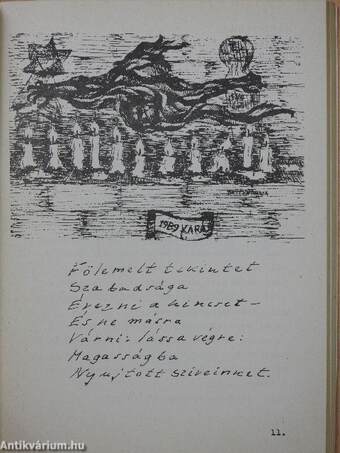 1989 KARÁ
Fölemelt tekintet
Szabadsága
Érezni a kincset —
És ne másra
Várni: lássa végre:
Magasságba
Nyujtott sziveinket.
11.
antikvárium.hu